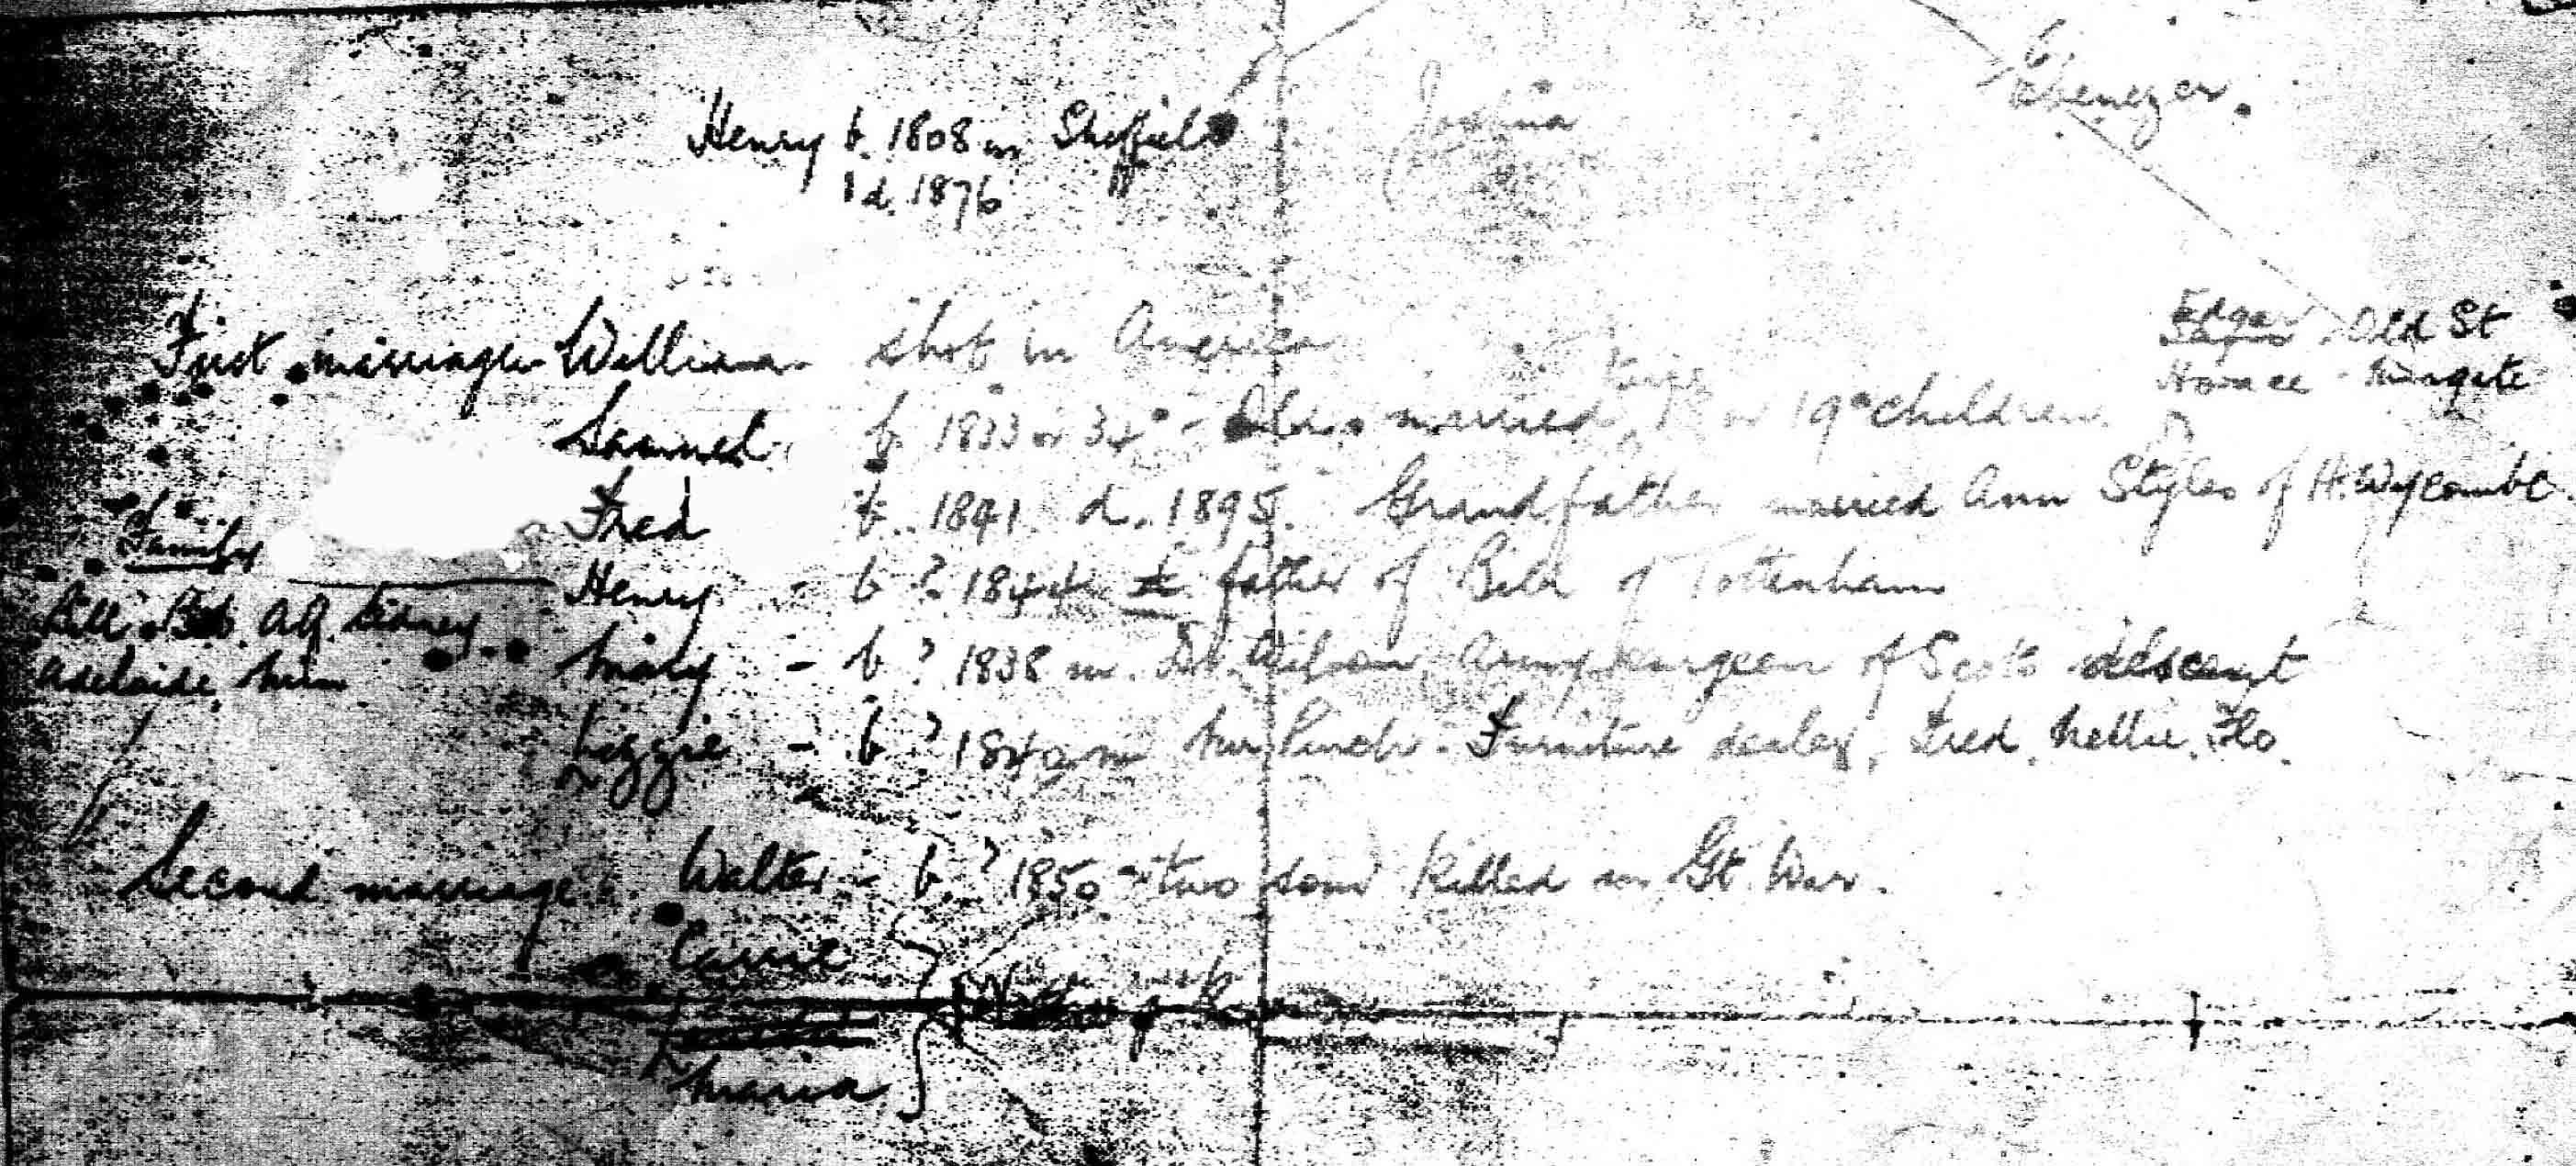 Ebenezer.
Henry b. 1808 in Sheffield
Joshua
d. 1876
Edgar - Old St
First marriage William shot in America
Horace -
Samuel b. 1833 or 34 - married twice or 19 children
Fred b. 1841. d. 1895. Grandfather married Ann Styles of H. Wycombe
Family
Henry - b ? 1844 father of Bill of Tottenham
Bill. Bob. Alf. Sidney
Mary - b ? 1838 m. Dr. Wilson, Army surgeon of Scots descent
Adelaide, Min
Lizzie - b ? 1840 m Punch - Furniture dealer, Fred, Nellie, Flo.
Second marriage Walter - b. ? 1850 - two sons killed in Gt. War.
Carrie
Maria